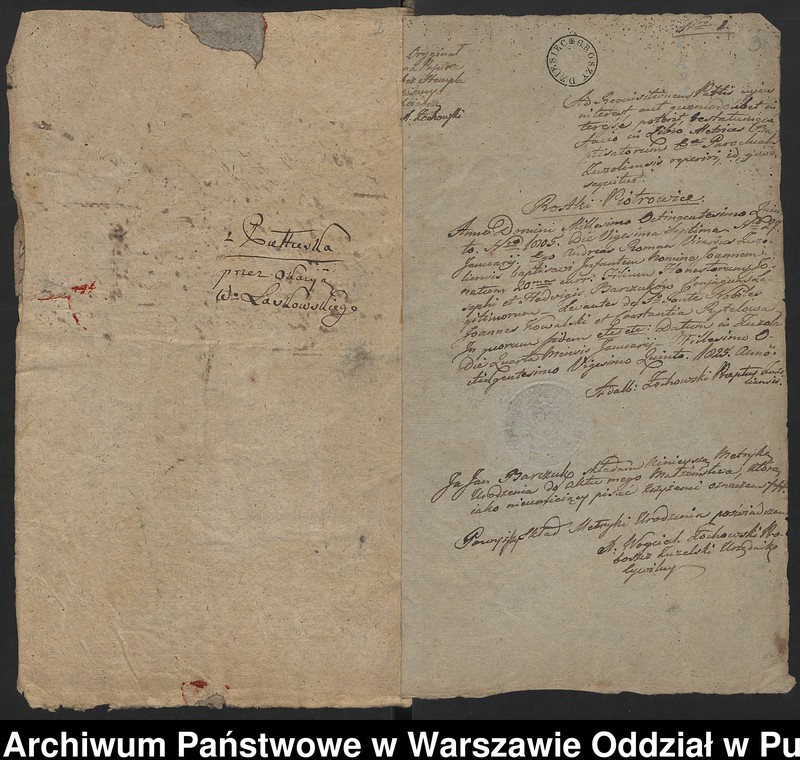 z Pułtuska
przez okazyą
Wo Laskowskiego
Nro 2.
3
DZIESIĘC GROSZY
Oryginał
na Papierze
bez Stempla
pisany
A. Żochowski
Ad Requisitionem Partis cujus
interest, aut quomodolibet in
teresse poterit, testatumque
facio in Libro Metrices Ba
ptisatorum Ecclae Parochialis
Zuzeliensis reperiri id, quod
sequitur.
Rostki Piotrowice.
Anno Domini Millesimo Octingentesimo Quin
to. Nro 1805. Die Vigesima Septima
Januarij. Ego Andreas Roman Vicarius Zuze
liensis baptisavi Infantem nomine Joannem
natum Filium Honestorum Jo
sephi et Hedvigis Barszczuków Conjugum Le
gitimorum. Levantes de So Fonte Nobiles
Joannes Kowalski et Constantia Rytelowa
In quorum fidem etc etc: Datum in Zuzela
Die Quarta Mensis Januarij Millesimo O
ctingentesimo Vigesimo Quinto. 1825. Anno
Adalb: Żochowski Praeptus Zuze
liensis.
Ja Jan Barszczuk składam ninieyszą Metrykę
Urodzenia do aktu mego Małżeństwa, którą
iako nieumieiący pisać krzyżami oznaczam +++
Powyższy skład Metryki Urodzenia poświadczam
X. Woyciech Żochowski Pro
boszcz Zuzelski Urzędnik
Cywilny
Archiwum Państwowe w Warszawie Oddział w Pu